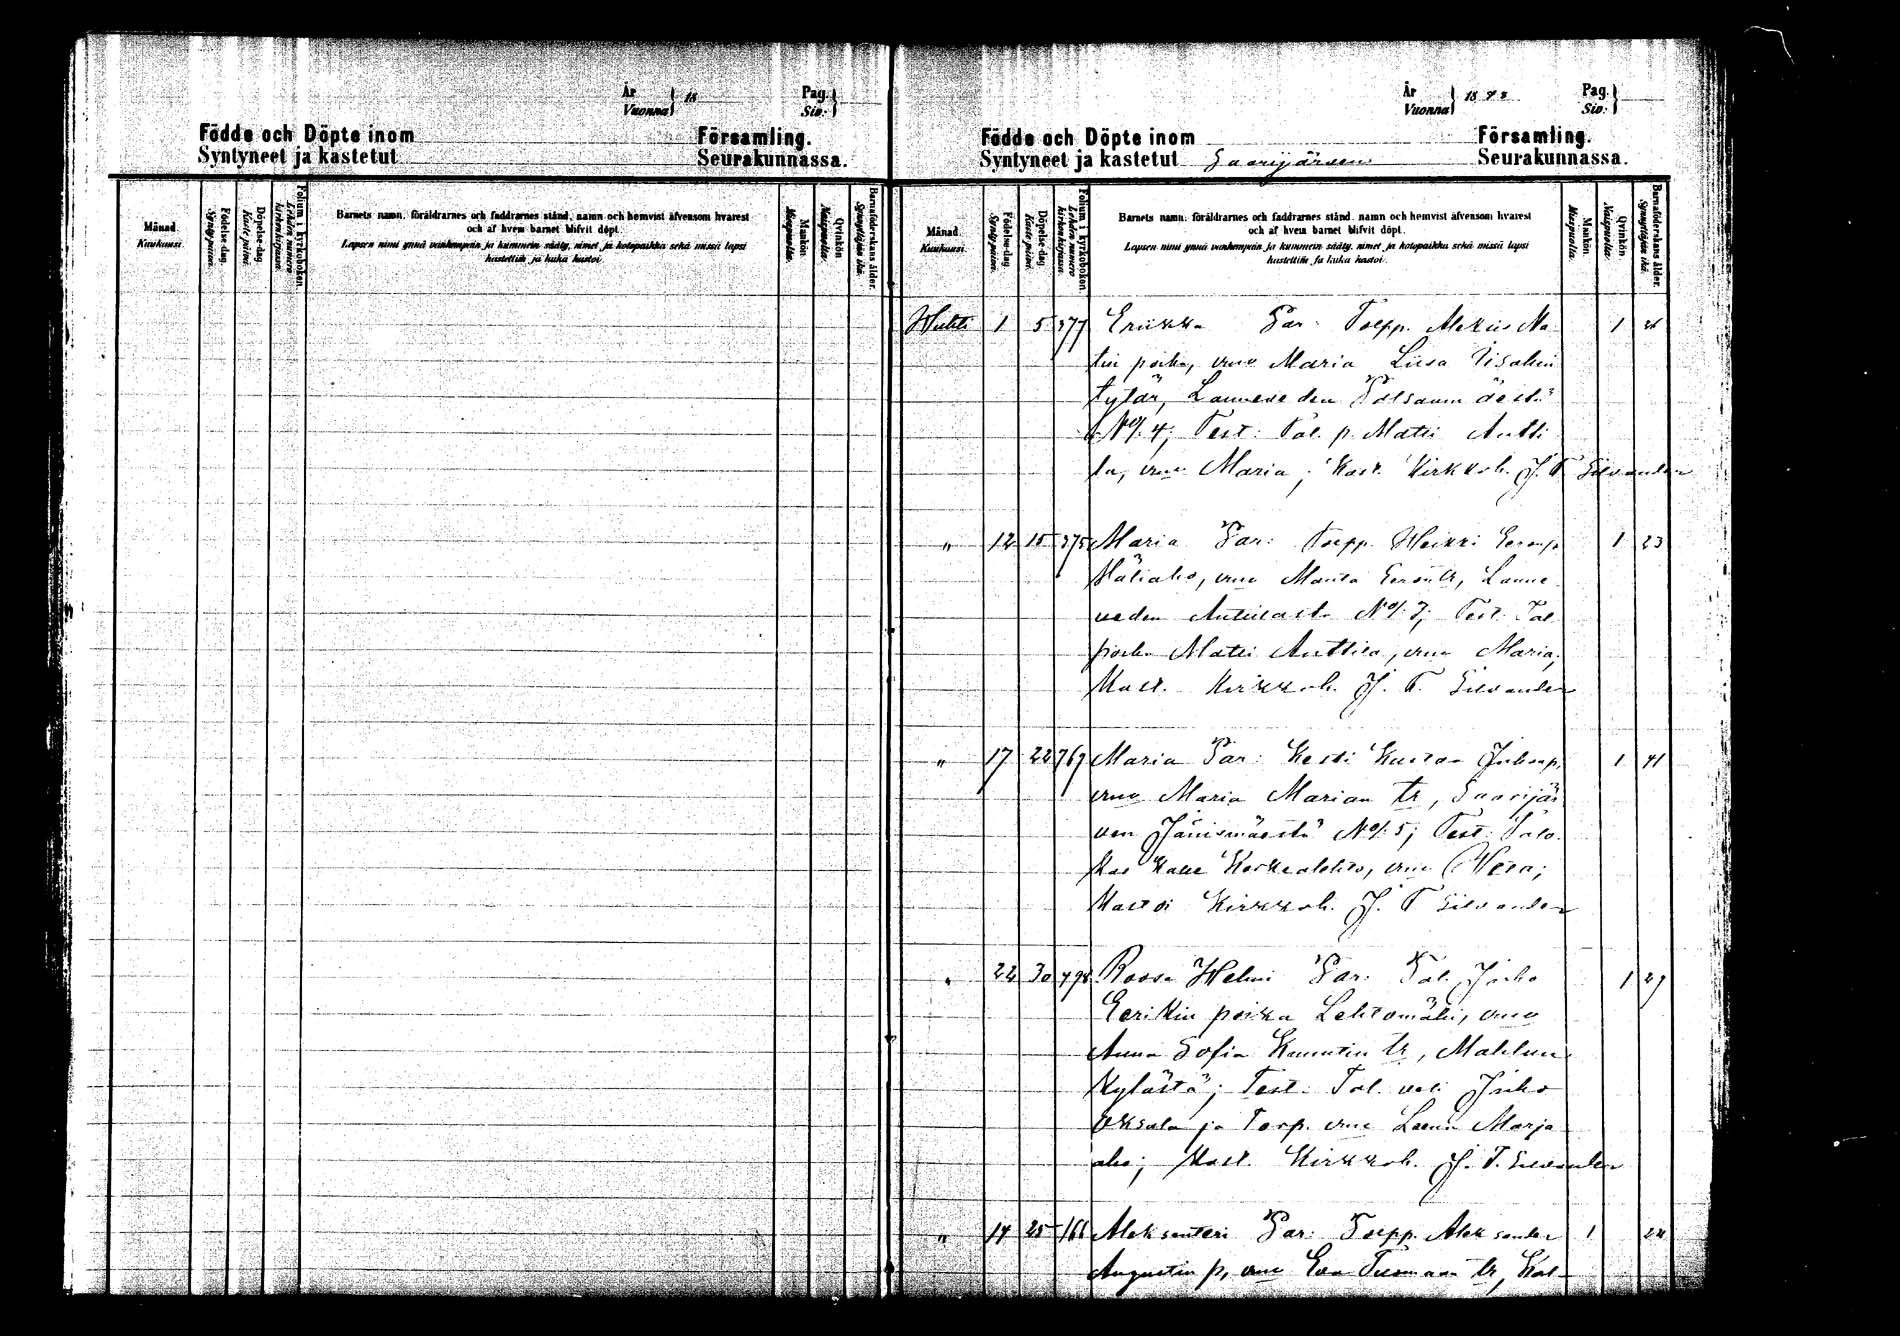 År
Vuonna } 18
Pag.
Siv: }
Födde och Döpte inom
Syntyneet ja kastetut
Församling.
Seurakunnassa.
Månad. Kuukausi.
Födelse-dag. Syntypäivä.
Döpelse-dag. Kaste päivä.
Folium i kyrkoboken. Lehden numero kirkonkirjassa.
Barnets namn, föräldrarnes och faddrarnes stånd, namn och hemvist äfvensom hvarest
och af hvem barnet blifvit döpt.
Lapsen nimi ynnä vanhempain ja kummein sääty, nimet ja kotopaikka sekä missä lapsi
kastettiin ja kuka kastoi.
Mankön. Miespuolia.
Qvinkön. Naispuolia.
Barnaföderskans ålder. Synnyttäjän ikä.
År
Vuonna } 18
Pag.
Siv: }
Födde och Döpte inom
Syntyneet ja kastetut Saarijärven
Församling.
Seurakunnassa.
Månad. Kuukausi.
Födelse-dag. Syntypäivä.
Döpelse-dag. Kaste päivä.
Folium i kyrkoboken. Lehden numero kirkonkirjassa.
Barnets namn, föräldrarnes och faddrarnes stånd, namn och hemvist äfvensom hvarest
och af hvem barnet blifvit döpt.
Lapsen nimi ynnä vanhempain ja kummein sääty, nimet ja kotopaikka sekä missä lapsi
kastettiin ja kuka kastoi.
Mankön. Miespuolia.
Qvinkön. Naispuolia.
Barnaföderskans ålder. Synnyttäjän ikä.
Huhti 1 5 377 Eriikka Par: Torpp. Ma- 1
tin poika, vmo Maria Liisa Iisakin
tytär, Lanneveden
No/. 4; Test: Tal. p. Matti Antti
la, vmo Maria; Kast. Kirkkoh. J. T. Silvander
" 12 15 375 Maria Par: Torpp. Heikki Eeronp. 1 23
vmo Manta Eeron tr, Lanne-
veden Anttilasta No/. 7; Test: Tal.
poika Matti Anttila, vmo Maria;
Kast. Kirkkoh. J. T. Silvander
" 17 22 767 Maria Par: Kesti Kustaa Juhonp. 1 41
vmo Maria Marian tr, Saarijär
ven Jänismäestä No/. 5; Test: Talo-
Kalle vmo
Kastoi Kirkkoh. J. T. Silvander
" 22 30 498 Roosa Helmi Par: Tal. Juho 1 29
Eerikin poika Lehtomäki, vmo
Anna Sofia tr, Mahlun
kylästä; Test: Tal. veli Juho
Oksala ja Torp. vmo Leena Marja
aho; Kast. Kirkkoh. J. T. Silvander
" 14 25 166 Aleksanteri Par: Torpp. Aleksander 1 24
Augustin p, vmo Eva tr, Kol-